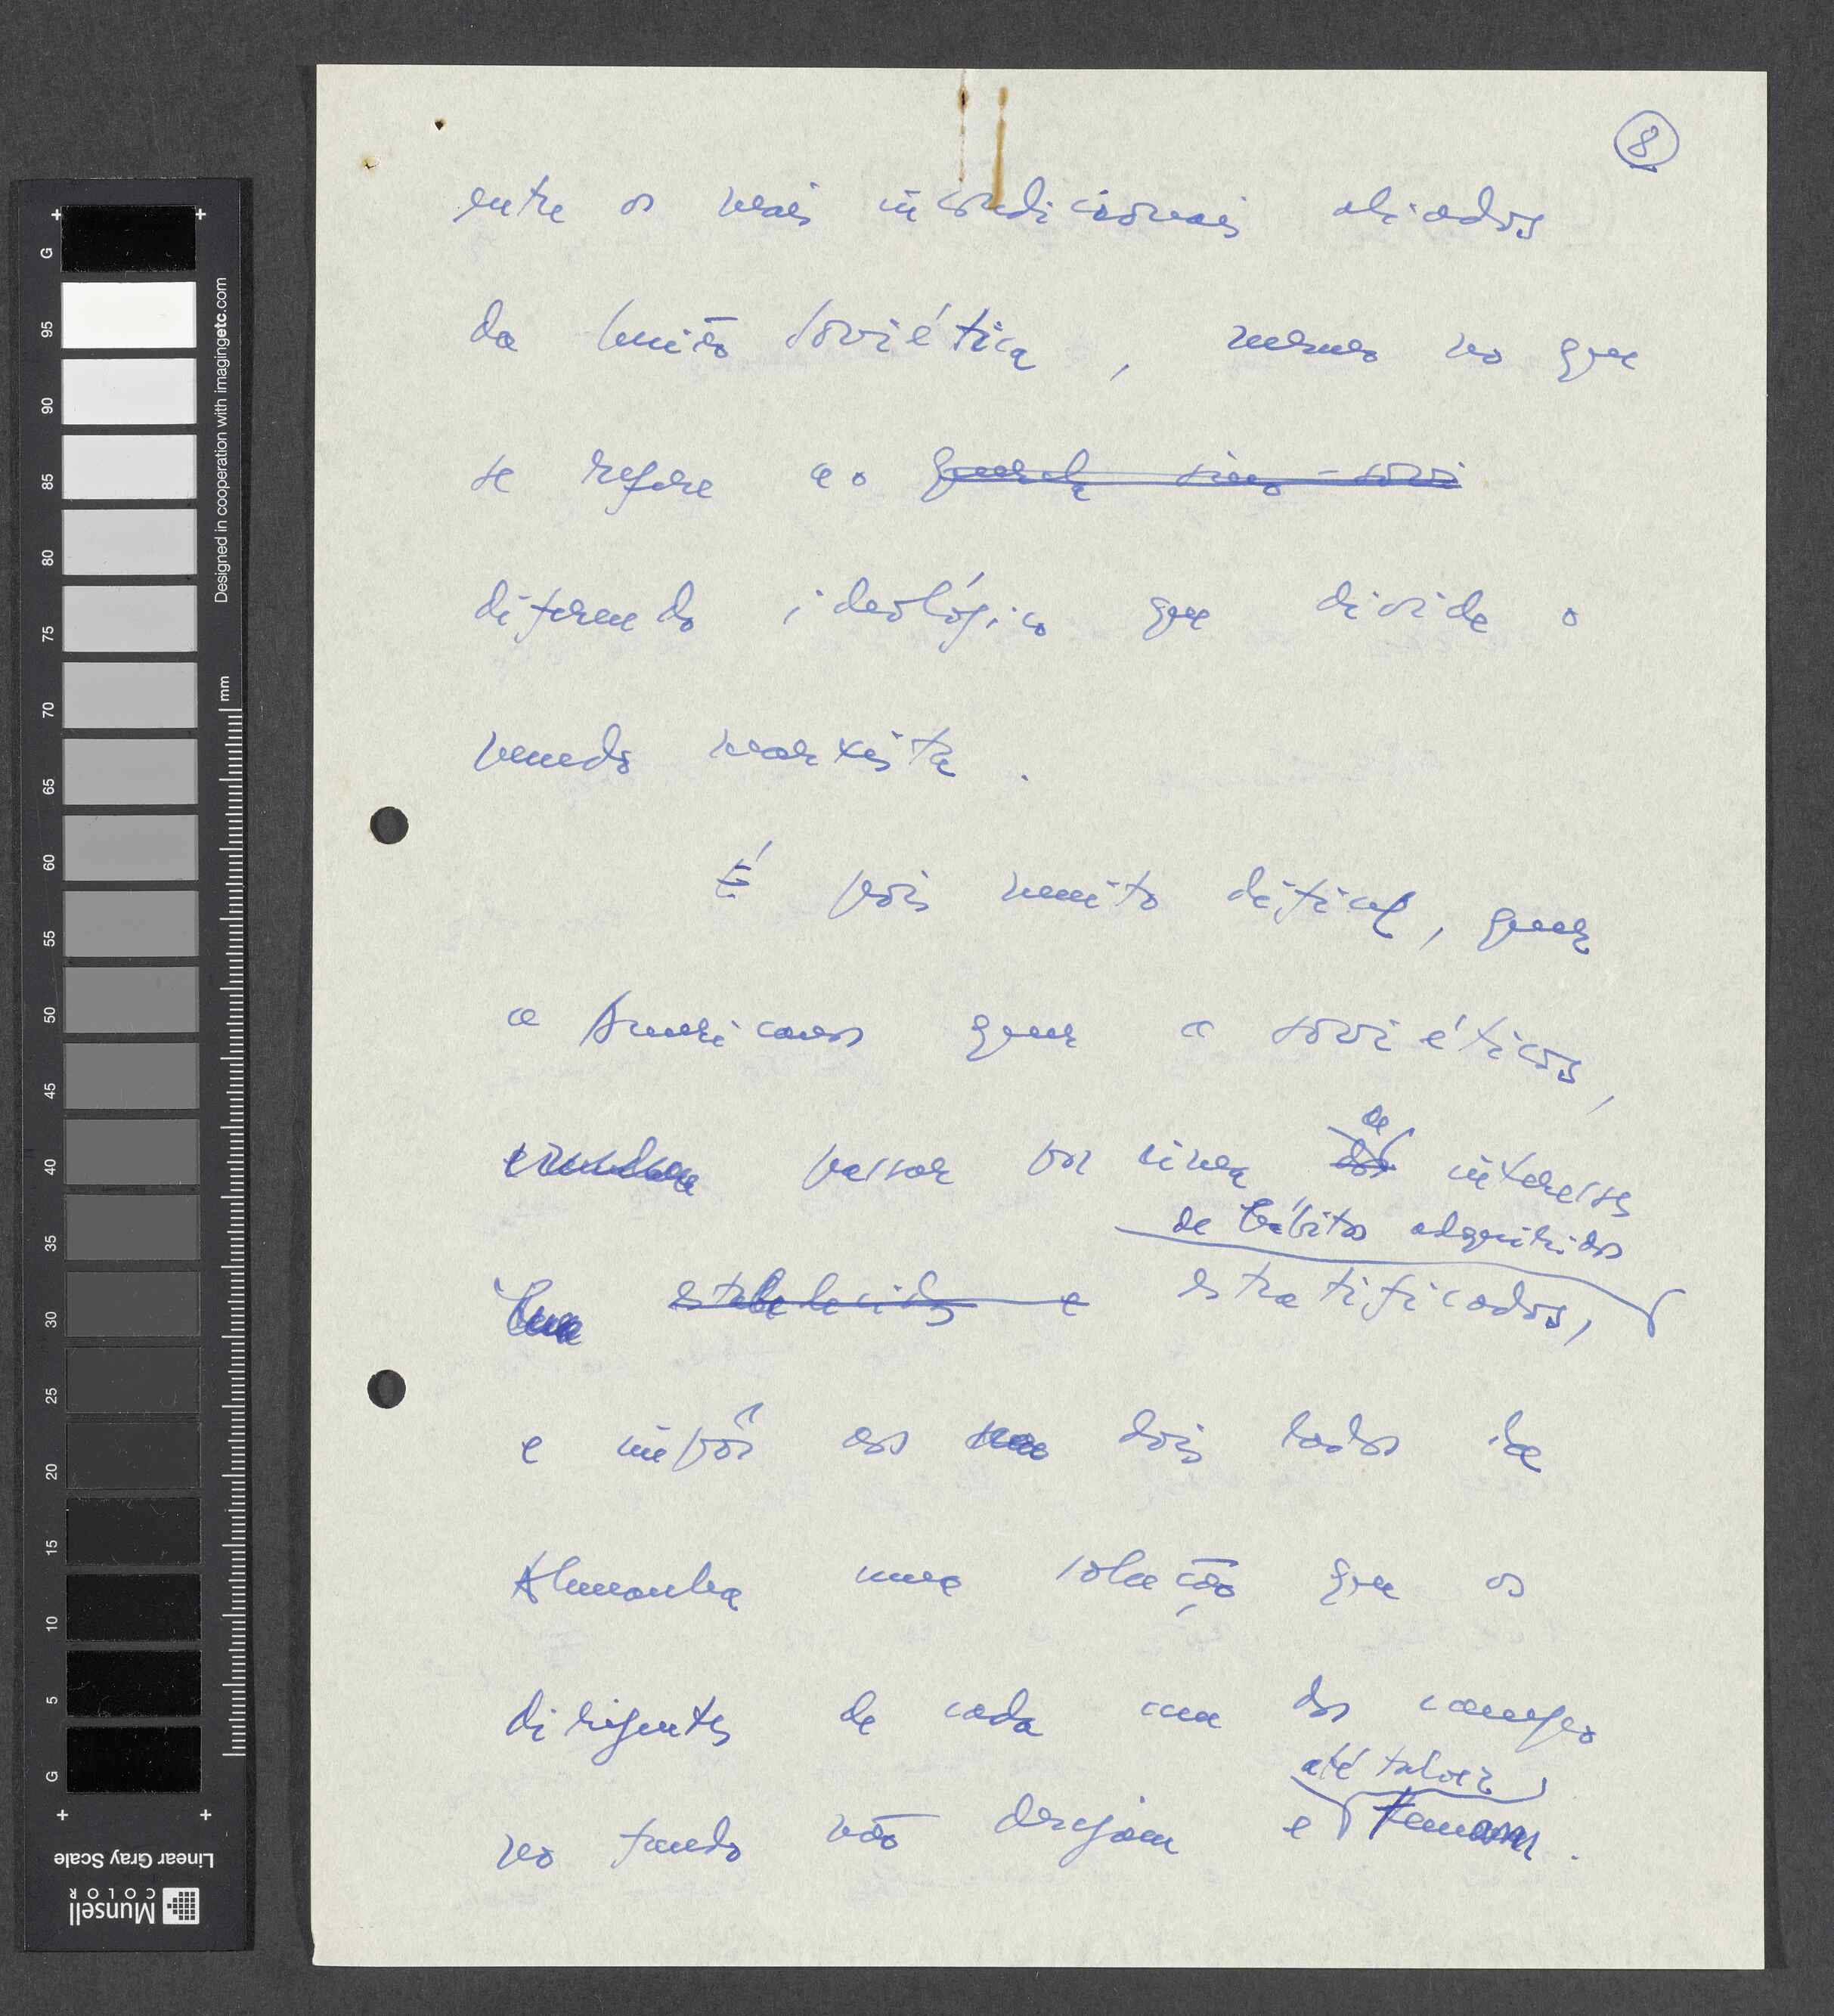 8
entre os mais incondicionais aliados
da União Soviética, mesmo no que
se refere ao querela sino-sovi
diferendo ideológico que divide o
mundo marxista.
É pois muito difícil, quer
a Americanos quer a soviéticos,
passar por cima de interesses
de hábitos adquiridos
estabelecidos e estratificados,
e impôr aos dois lados da
Alemanha uma solução que os
dirigentes de cada um dos campos
até talvez
no fundo não desejam e temam.
Designed in cooperation with imagingetc.com
mm
G
95
90
85
80
75
70
65
60
55
50
45
40
35
30
25
20
15
10
5
G
Linear Gray Scale
Munsell
COLOR